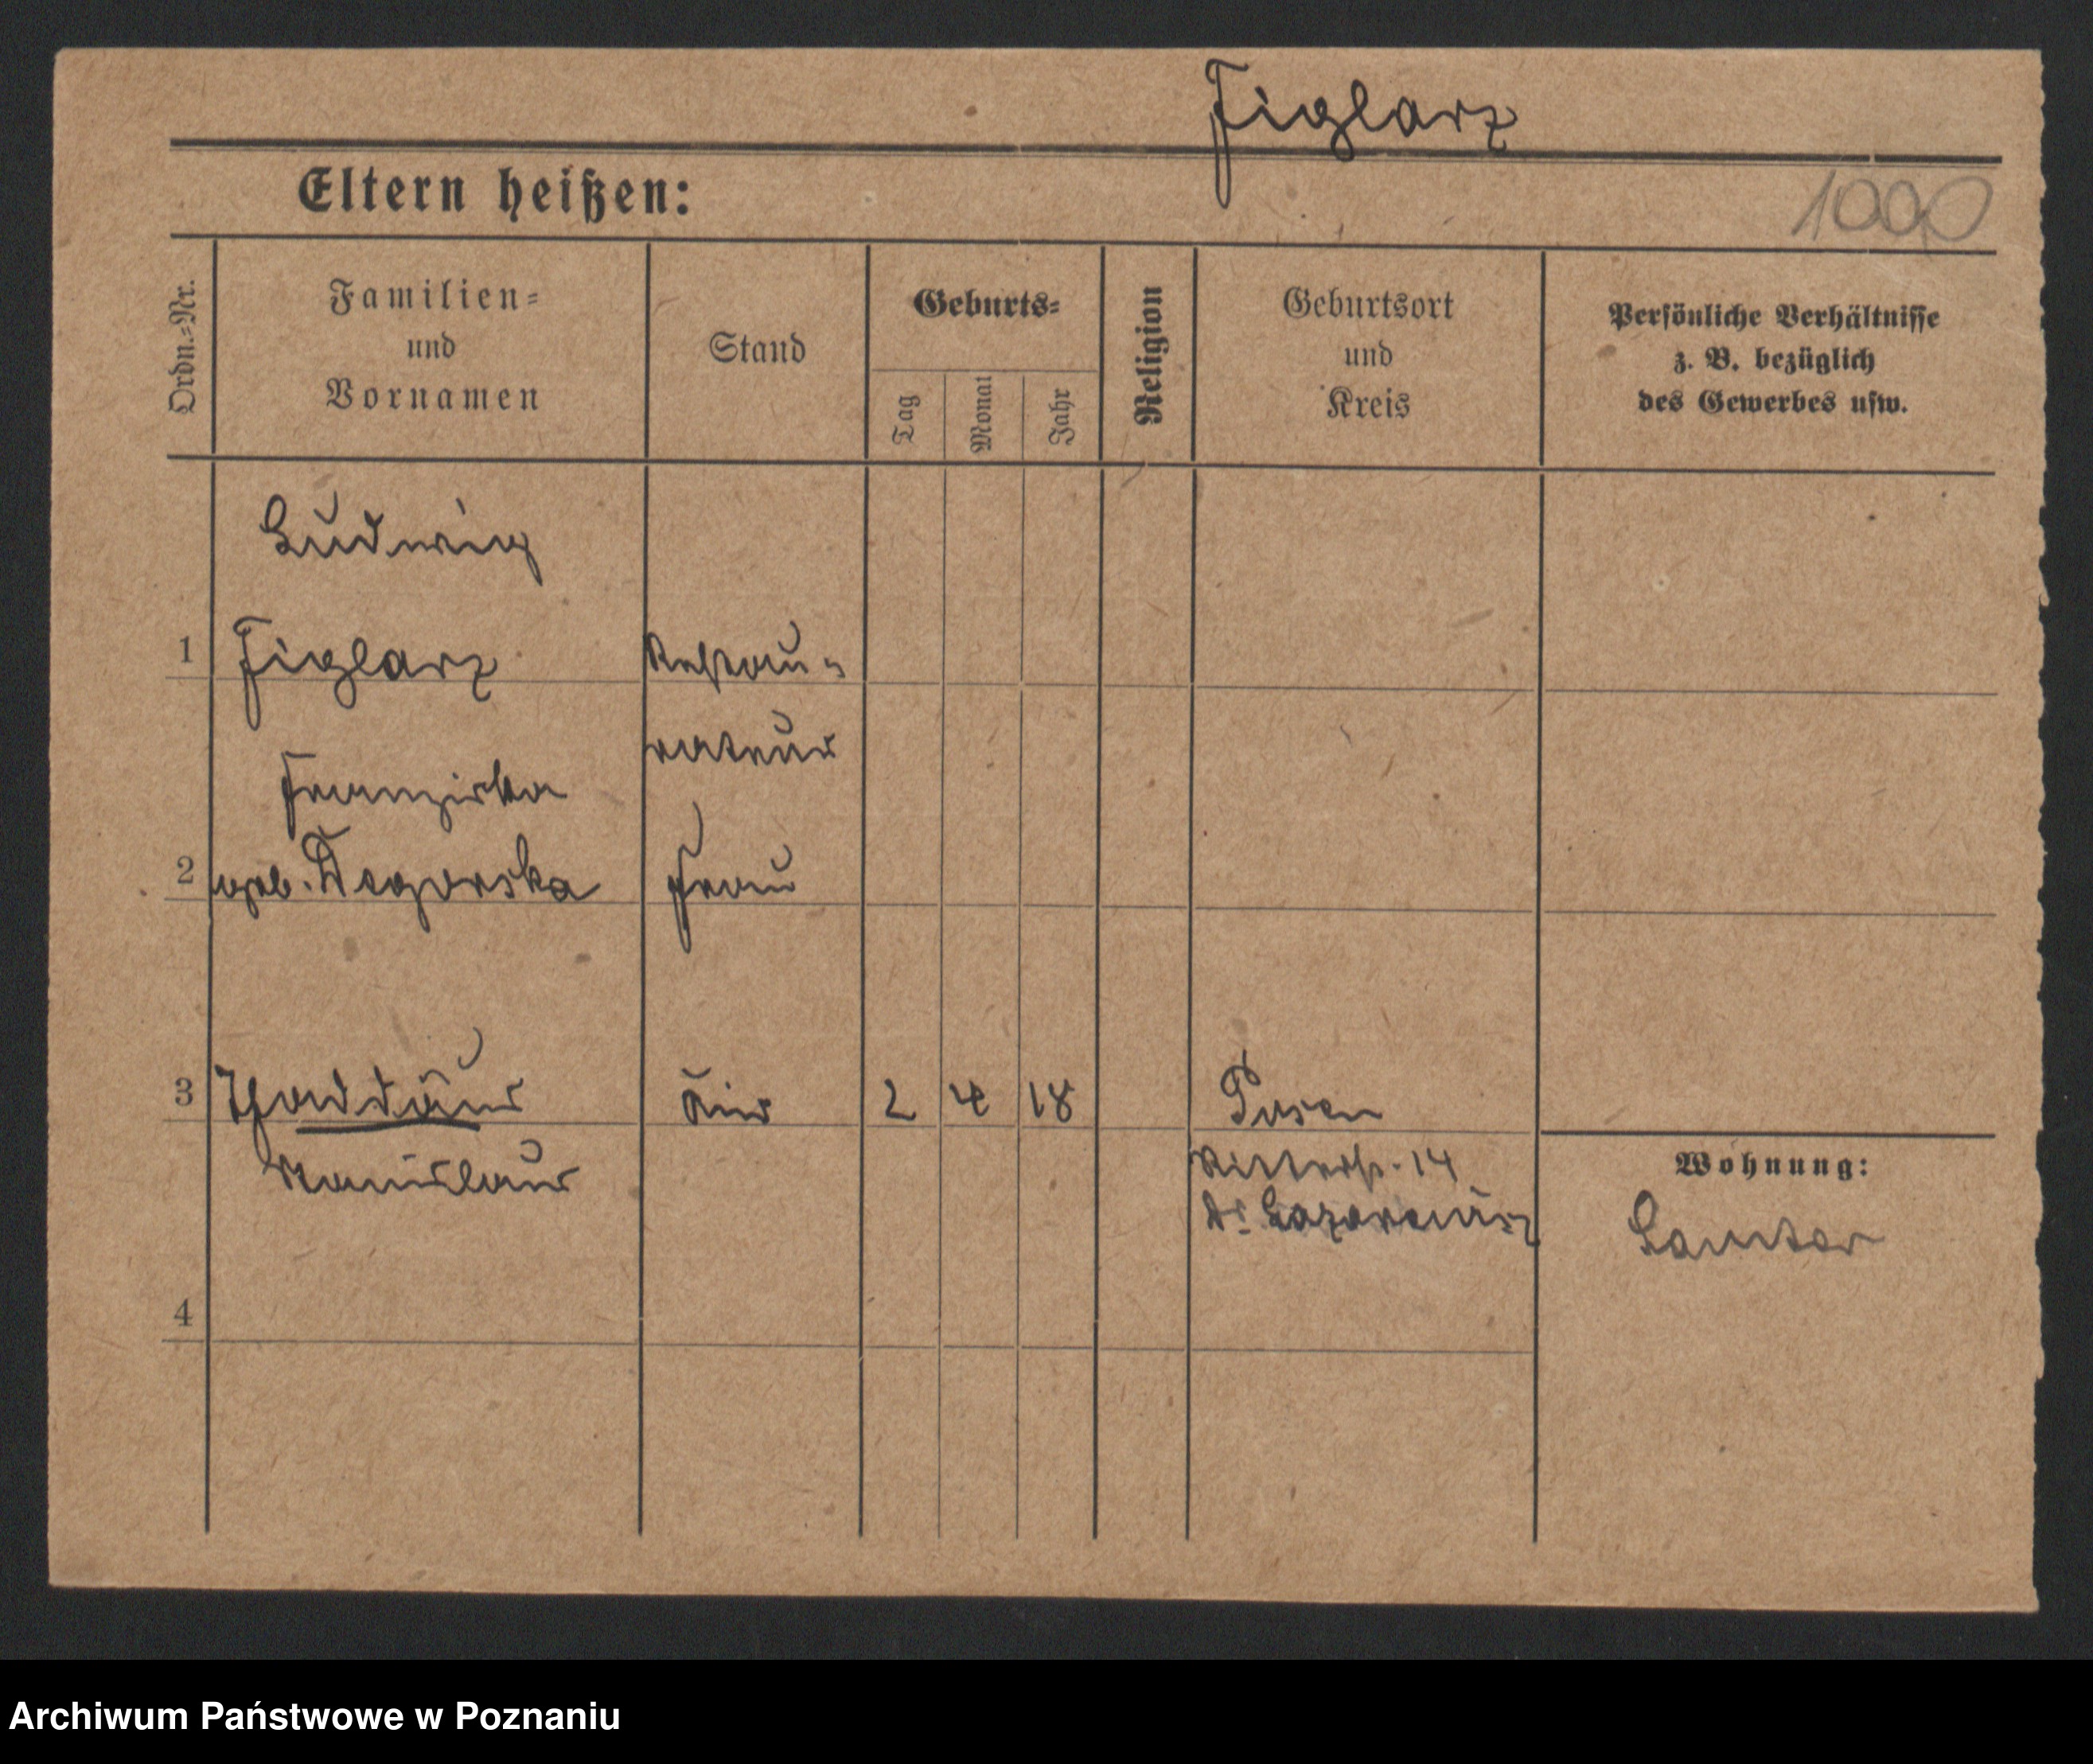 Figlarz
Eltern heißen:
1000
Ordn.=Nr.
Familien=
und
Vornamen
Stand
Geburts=
Tag
Monat
Jahr
Religion
Geburtsort
und
Kreis
Persönliche Verhältnisse
z. B. bezüglich
des Gewerbes usw.
Ludwig
1 Figlarz Restau=
rateur
Franziska
2 geb. Degorska Frau
3 Thaddäus 2 4 18 Posen
Stanislaus Ritterstr. 14
Dr. Lazarewicz
Wohnung:
Samter
4
Archiwum Państwowe w Poznaniu